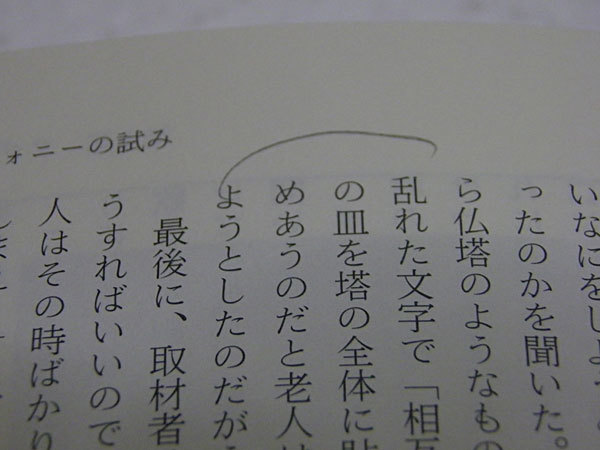 ォニーの試み
いなにをしよう
ったのかを聞いた。
ら仏塔のようなもの
乱れた文字で「相互
の皿を塔の全体に貼
めあうのだと老人は
ようとしたのだが
最後に、取材者
うすればいいので
人はその時ばかり